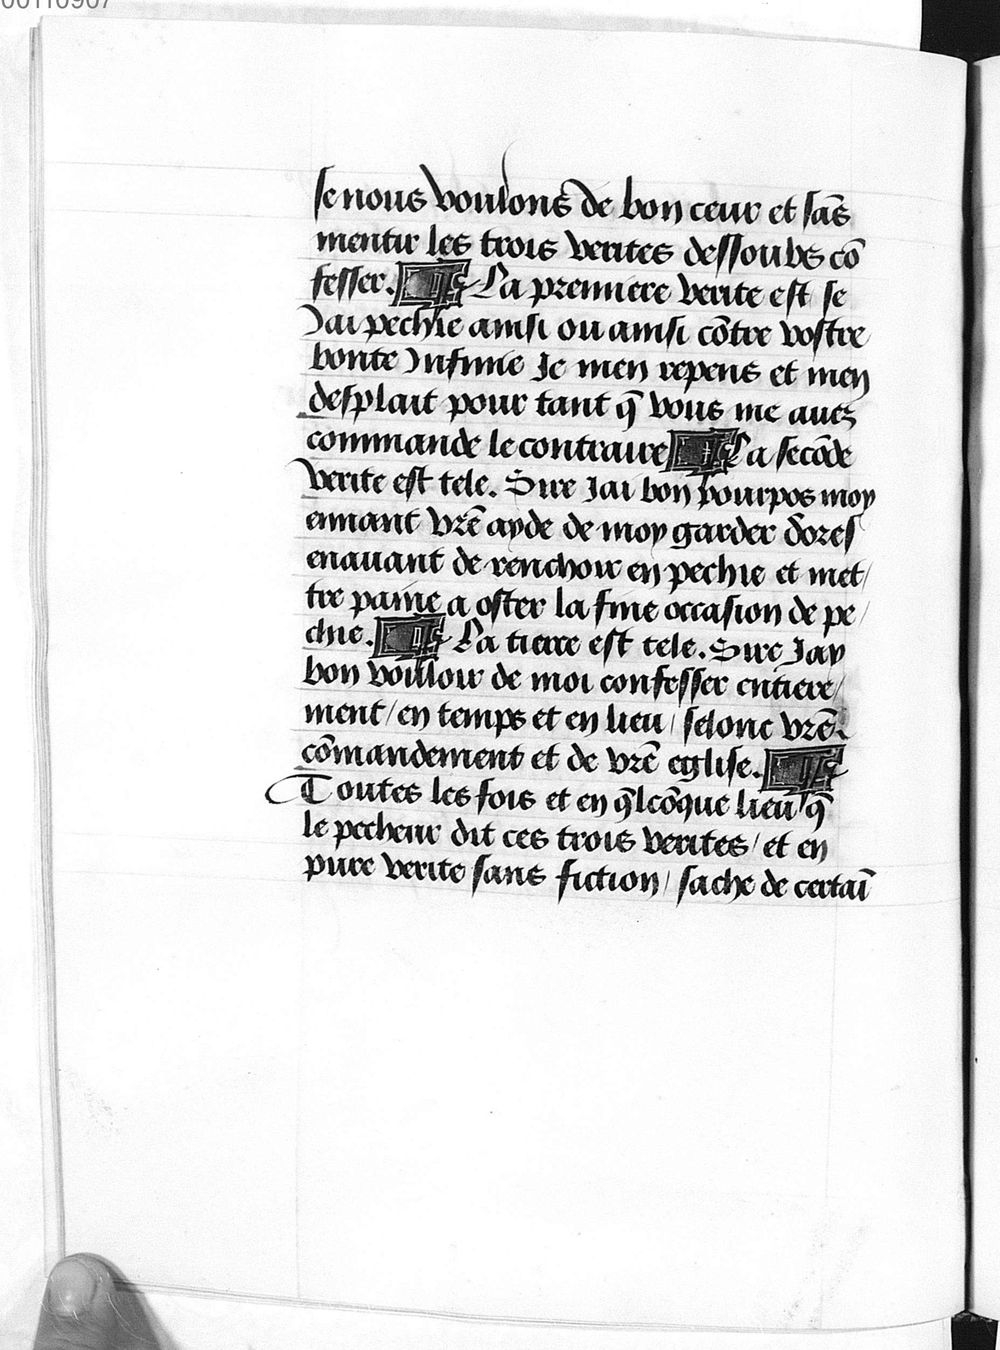 00110907
se nous voulons de bon ceur et sās
mentir les trois verites dessoubs cō
fesser. ¶ La premiere verite est se
Jai pechie ainsi ou ainsi cōtre vostre
bonte Infinie Je men repens et men
desplait pour tant q̄ vous me auez
commande le contraire ¶ La secōde
verite est tele. Sire Jai bon pourpos moy
ennant vrē ayde de moy garder dores
enauant de renchoir en pechie et met/
tre paine a oster la fine occasion de pe/
chie. ¶ La tierce est tele. Sire Jay
bon vouloir de moi confesser entiere/
ment/ en temps et en lieu/ selonc vrē
cōmandement et de vrē eglise. ¶
Toutes les fois et en q̄lcōque lieu q̄
le pecheur dit ces trois verites/ et en
pure verite sans fiction/ sache de certaī